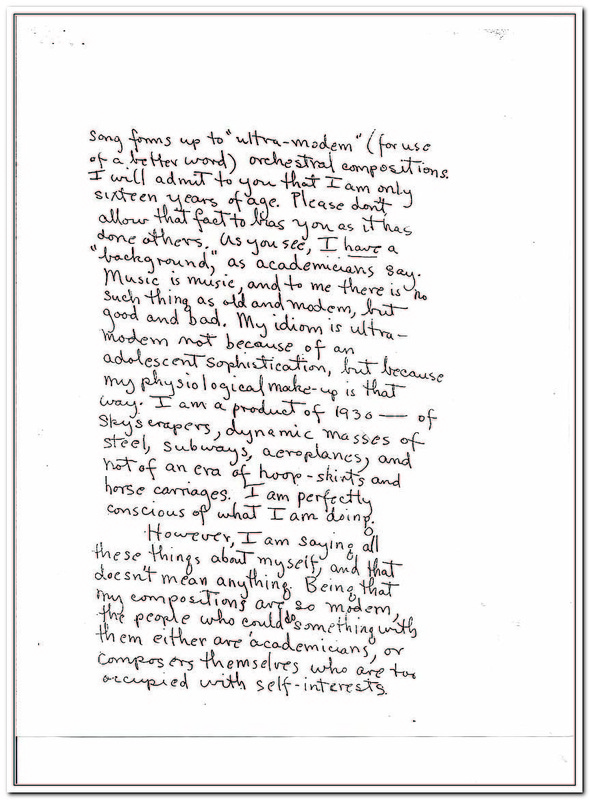 song forms up to "ultra-modern" (for use
of a better word) orchestral compositions.
I will admit to you that I am only
sixteen years of age. Please don't
allow that fact to bias you as it has
done others. As you see, I have a
"background," as academicians say.
Music is music, and to me there is no
such thing as old and modern, but
good and bad. My idiom is ultra-
modern not because of an
adolescent sophistication, but because
my physiological make-up is that
way. I am a product of 1930 — of
skyscrapers, dynamic masses of
steel, subways, aeroplanes, and
not of an era of hoop-skirts and
horse carriages. I am perfectly
conscious of what I am doing.
However, I am saying all
these things about myself, and that
doesn't mean anything. Being that
my compositions are so modern,
the people who could do something with
them either are academicians, or
composers themselves who are too
occupied with self-interests.